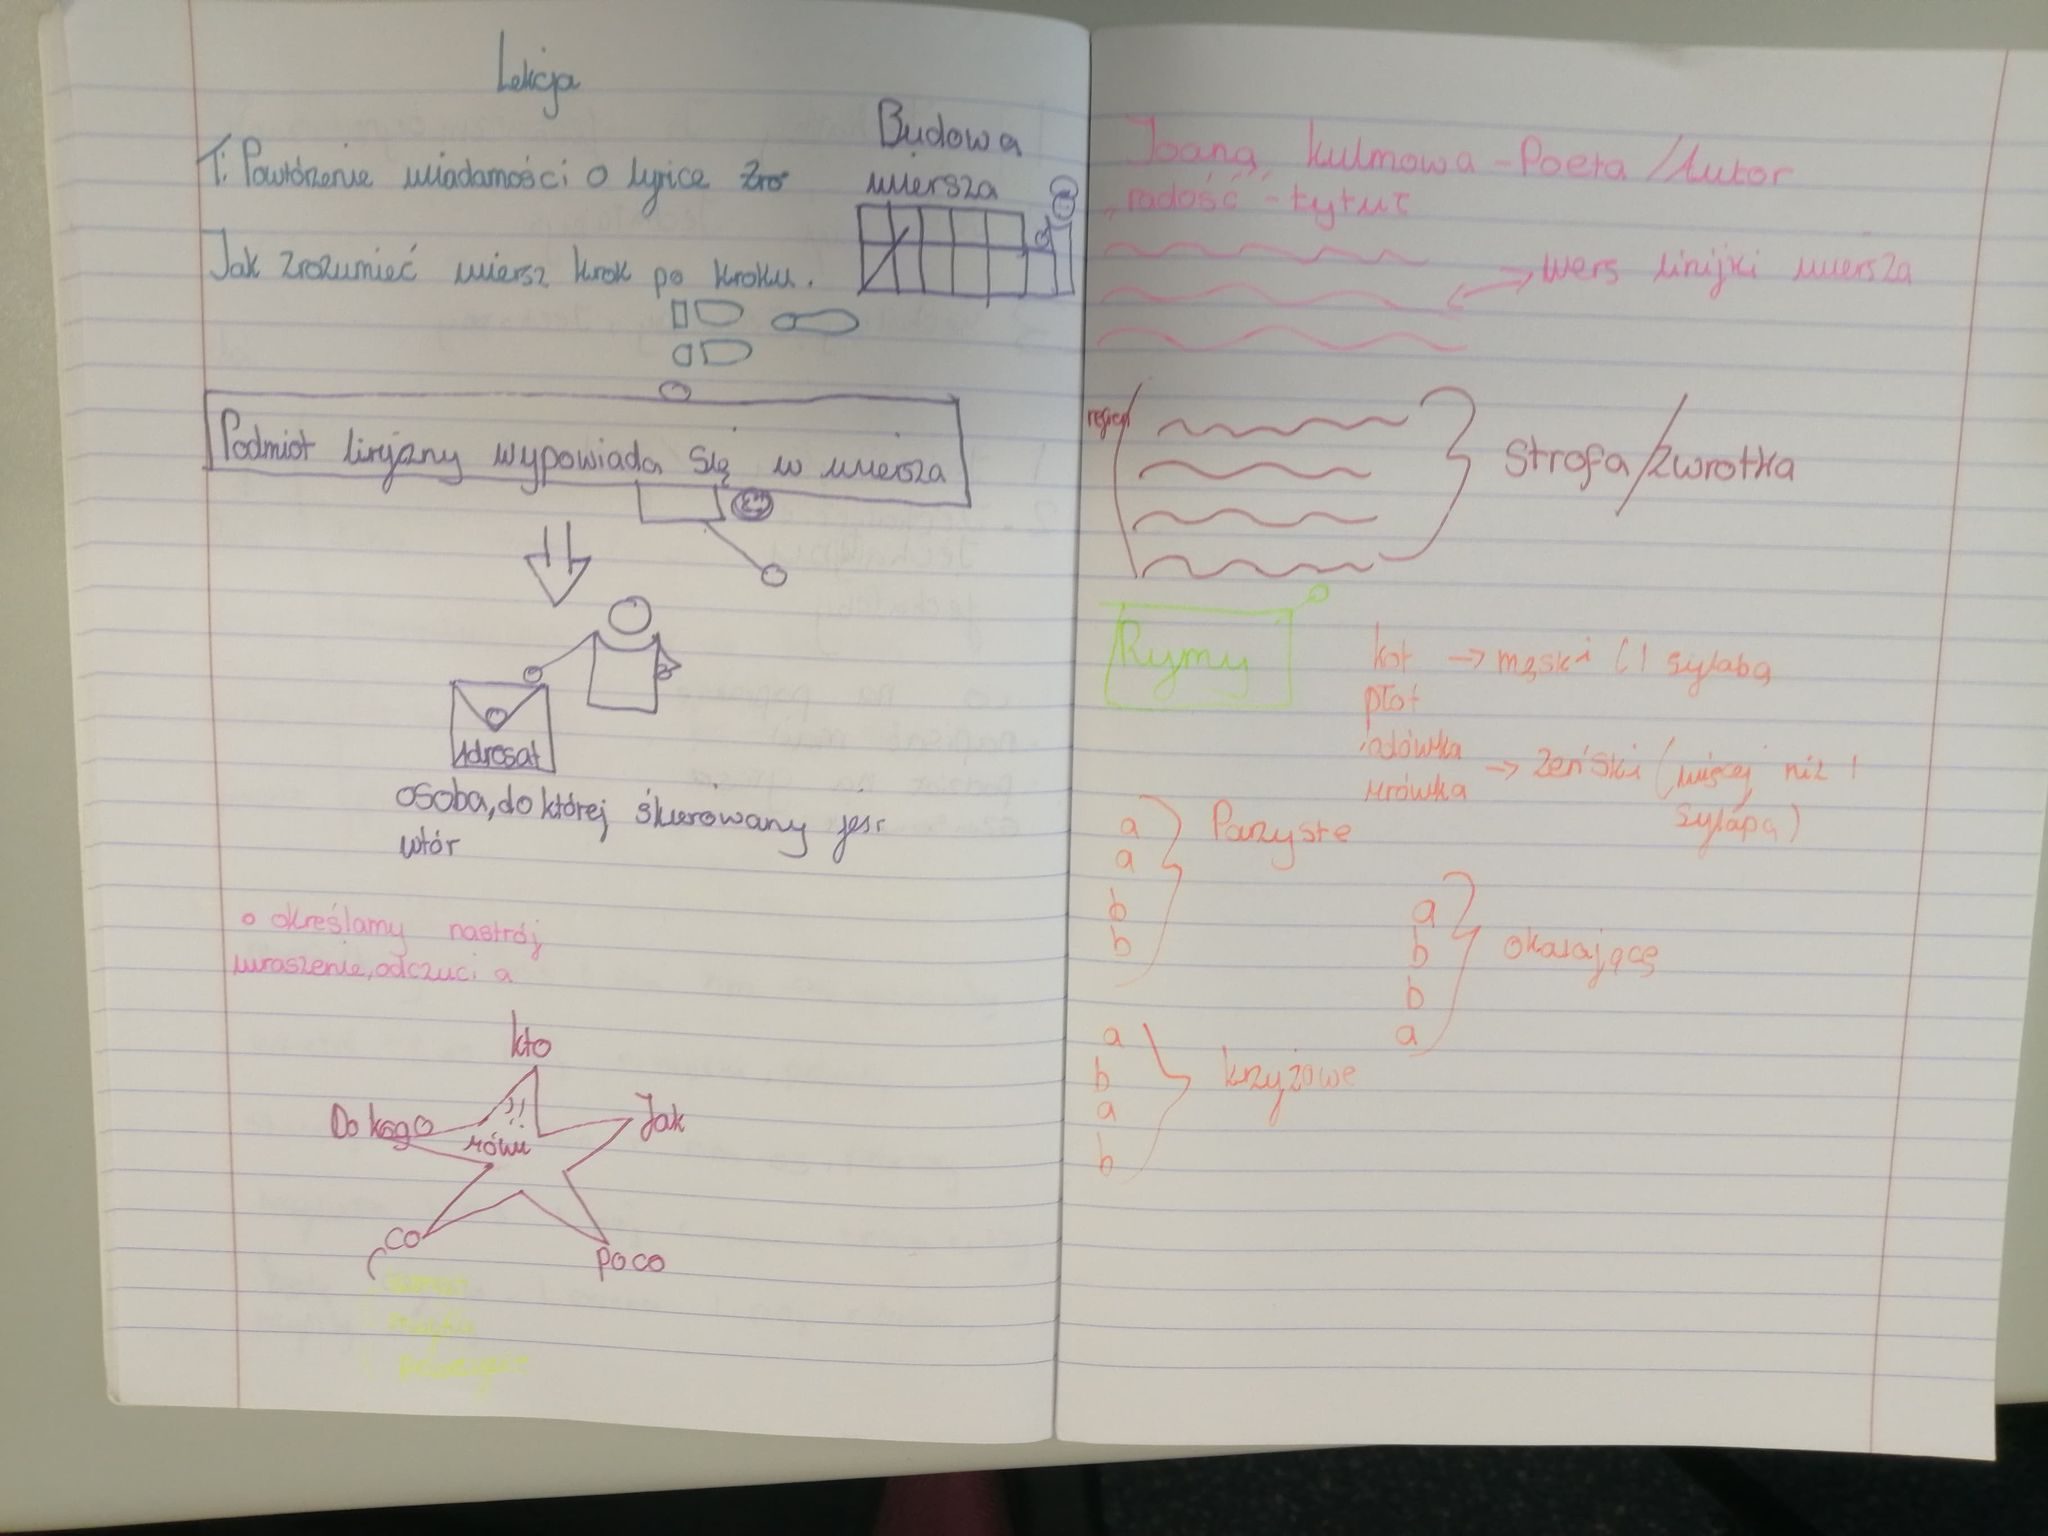 Lekcja
T: Powtórzenie wiadomości o lyrice
Jak zrozumieć wiersz krok po kroku.
Budowa
wiersza
Podmiot liryczny wypowiada się w wiersza
Adresat
osoba, do której skierowany jest
utór
określamy nastrój
wraszenie, odczuci a
kto
Do kogo
mówi
Jak
co
Po co
Joana, Kulmowa - Poeta / Autor
"radość" - tytuł
wers linijki wiersza
Strofa/zwrotka
Rymy
kot → męski (1 sylaba
płot
mrówka → żeński (więcej niż 1
sylapa)
a
a
b
b
Parzyste
a
b
b
a
okalającę
a
b
a
b
krzyżowe